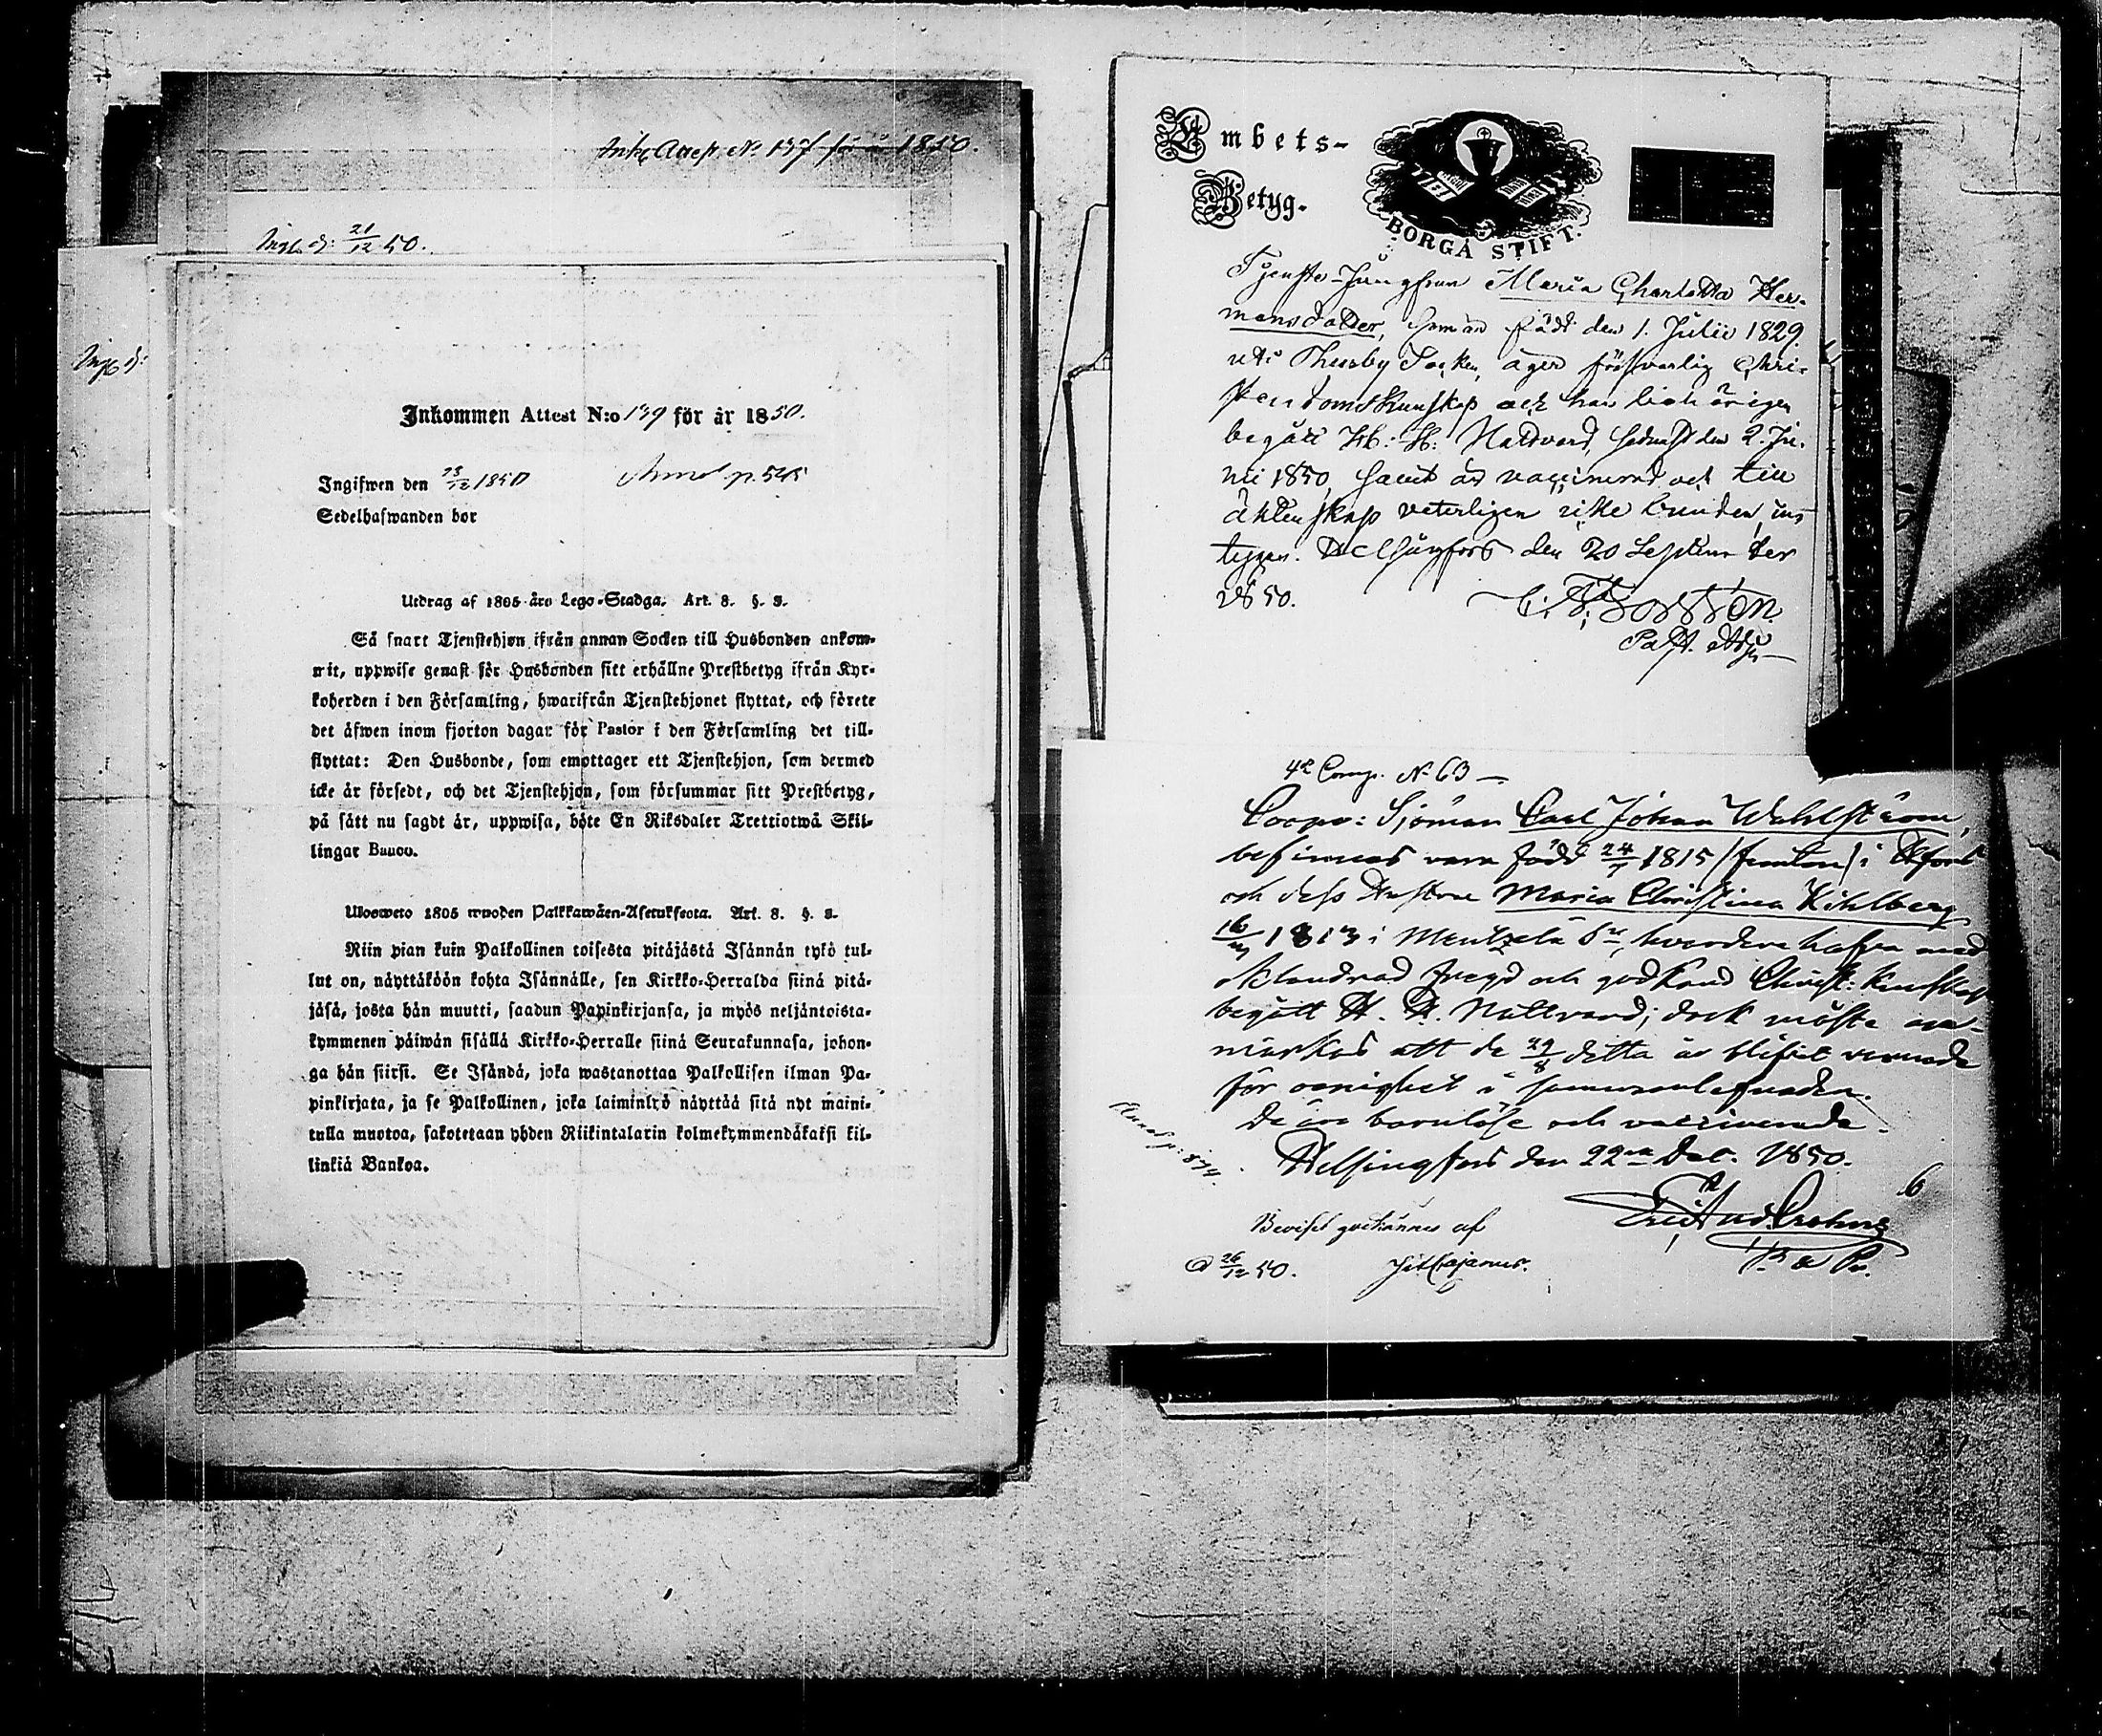 Ink. Attest No 137 för år 1850.
Ingk. d: 21/12 50.
Ingk d:
Inkommen Attest N:o 139 för år 1850.
Ingifwen den 23/12 1850 p. 545
Sedelhafwanden bor
Utdrag af 1805 års Lego-Stadga. Art. 8. §. 3.
Så snart Tjenstehjon ifrån annan Socken till Husbonden ankom-
mit, uppwise genast för Husbonden sitt erhållne Prestbetyg ifrån Kyr-
koherden i den Församling, hwarifrån Tjenstehjonet flyttat, och förete
det äfwen inom fjorton dagar för Pastor i den Församling det till-
flyttat: Den Husbonde, som emottager ett Tjenstehjon, som dermed
icke är försedt, och det Tjenstehjon, som försummar sitt Prestbetyg,
på sätt nu sagdt är, uppwisa, böte En Riksdaler Trettiotwå Skil-
lingar Banco.
Ulosweto 1805 wuoden Palkkawäen-Asetuksesta. Art. 8. §. 3.
Niin pian kuin Palkollinen toisesta pitäjästä Isännän tykö tul-
lut on, näyttäköön kohta Isännälle, sen Kirkko-Herralda siinä pitä-
jäsä, josta hän muutti, saadun Papinkirjansa, ja myös neljäntoista-
kymmenen päiwän sisällä Kirkko-Herralle siinä Seurakunnasa, johon-
ga hän siirsi. Se Isändä, joka wastanottaa Palkollisen ilman Pa-
pinkirjata, ja se Palkollinen, joka laiminlyö näyttää sitä nyt maini-
tulla muotoa, sakotetaan yhden Riikintalarin kolmekymmendäkaksi kil-
linkiä Bankoa.
Embets-
Betyg.
BORGÅ STIFT.
Tjenste-Jungfrun Maria Charlotta Her-
mansdotter, född den 1. Julii 1829.
uti Thusby Socken, äger försvarlig Chri-
stendomskunskap och har
begått H: H: Nattvard, sednast den 2. Ju-
nii 1850, samt är vaccinerad och till
äktenskap veterligen icke bunden, in-
tygar. Helsingfors den 20 September
1850.
Past. Adj.
42 Comp. No 63
Corpr: Sjöman Carl Johan Wahlström,
befinnes vara född 24/7 1815 (femton) i Hfors
och dess Hustru Maria Christina Kihlberg
16/ 1813 i Mentzelä Sn, hvardera hafva med
oklandrad frejd och godkänd Christ: Kunskap
begått H. H. Nattvard; dock måste an-
märkas att de 29/8 detta år blifvit varnade
för oenighet i sammanlefnaden.
De äro barnlöse och vaccinerade.
p: 874.
Helsingfors den 22 Dec. 1850.
6
Beviset godkännes af
d 26/12 50. Cajanus.